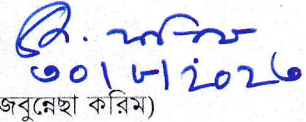 ৩০|৮|২০২৩
জবুন্নেছা করিম)